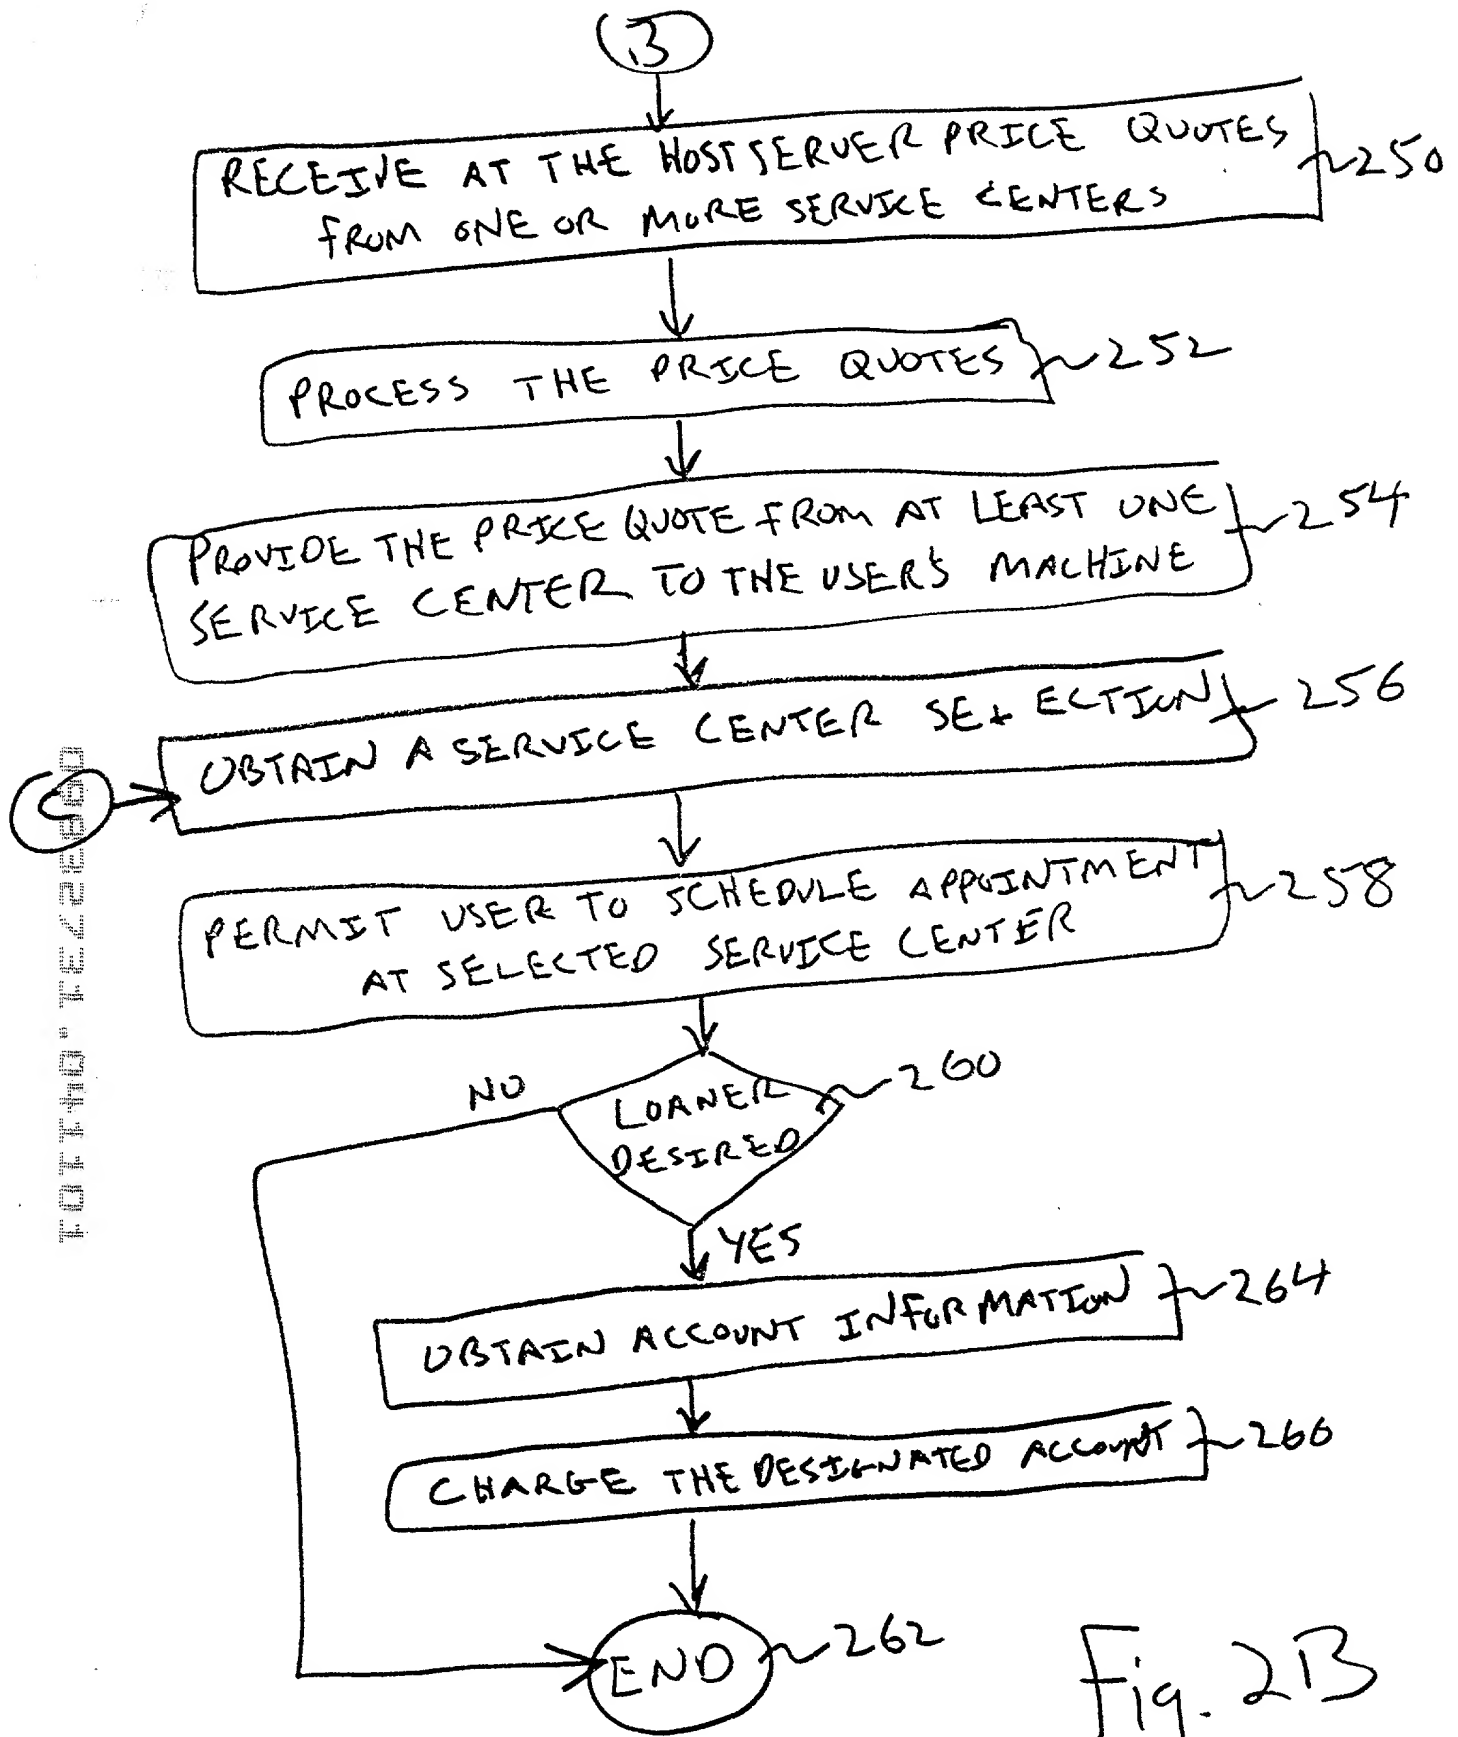 B
RECEIVE AT THE HOST SERVER PRICE QUOTES
FROM ONE OR MORE SERVICE CENTERS
250
PROCESS THE PRICE QUOTES
252
PROVIDE THE PRICE QUOTE FROM AT LEAST ONE
SERVICE CENTER TO THE USER'S MACHINE
254
OBTAIN A SERVICE CENTER SELECTION
256
C
PERMIT USER TO SCHEDULE APPOINTMENT
AT SELECTED SERVICE CENTER
258
LOANER
DESIRED
260
NO
YES
OBTAIN ACCOUNT INFORMATION
264
CHARGE THE DESIGNATED ACCOUNT
266
END
262
Fig. 2B